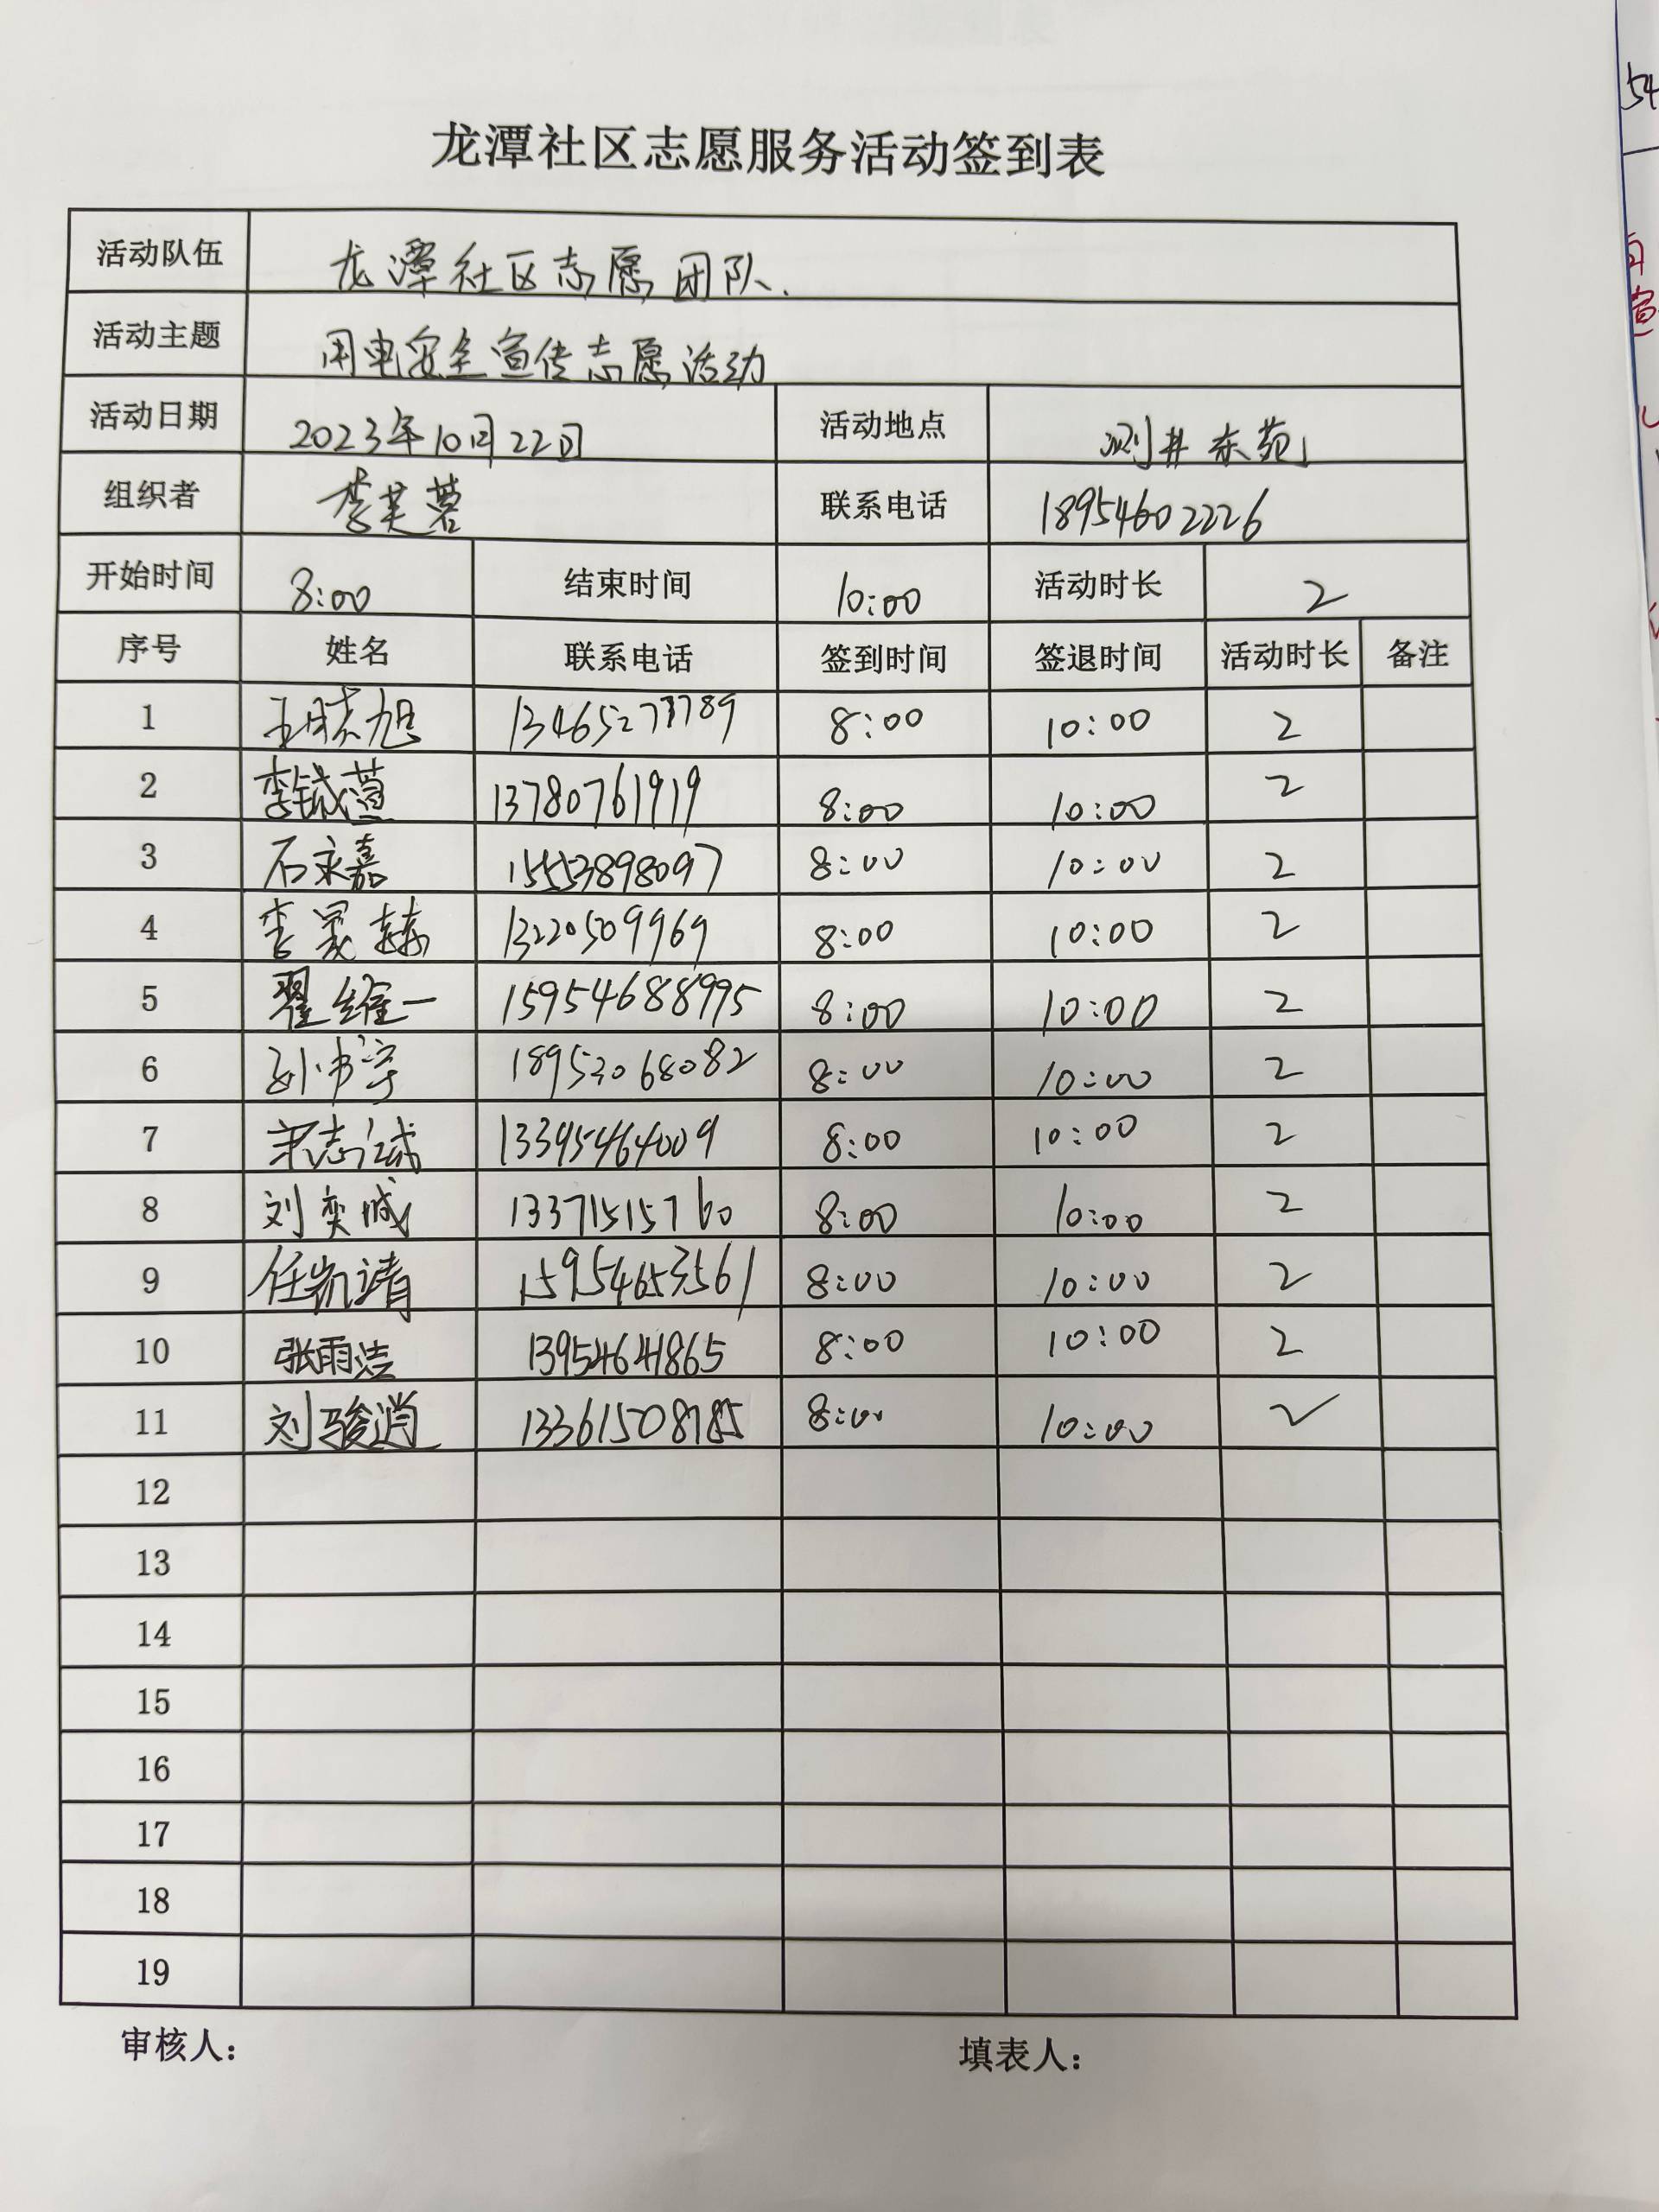 龙潭社区志愿服务活动签到表
活动队伍 龙潭社区志愿团队.
活动主题 用电安全宣传志愿活动
活动日期 2023年10月22日 活动地点 测井东苑
组织者 李芙蓉 联系电话 18954602226
开始时间 8:00 结束时间 10:00 活动时长 2
序号 姓名 联系电话 签到时间 签退时间 活动时长 备注
1 13465277789 8:00 10:00 2
2 13780761919 8:00 10:00 2
3 石永嘉 15553898097 8:00 10:00 2
4 李昊赫 13220509969 8:00 10:00 2
5 翟维一 15954688995 8:00 10:00 2
6 孙书宇 18953068082 8:00 10:00 2
7 宋志诚 13395464009 8:00 10:00 2
8 刘奕城 13371515760 8:00 10:00 2
9 任凯靖 15954653561 8:00 10:00 2
10 张雨洁 13954641865 8:00 10:00 2
11 刘骏逍 13361508785 8:00 10:00 2
12
13
14
15
16
17
18
19
审核人： 填表人：
54